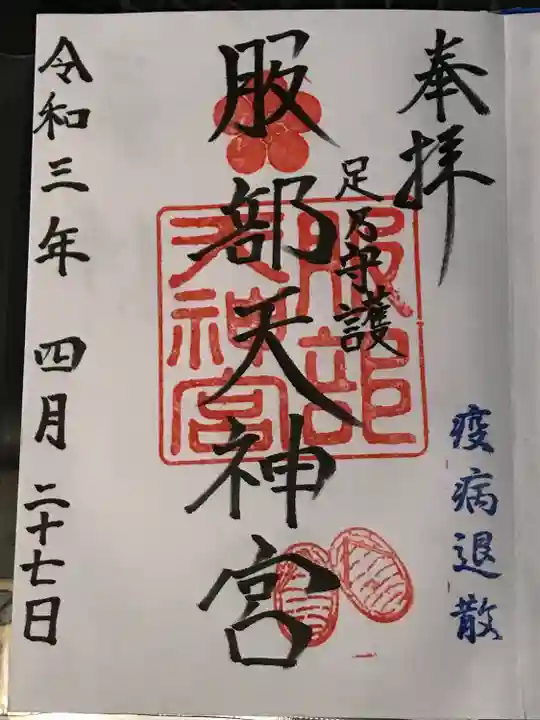 奉拝
疫病退散
足乃守護
服部天神宮
服部
天神宮
令和三年 四月 二十七日